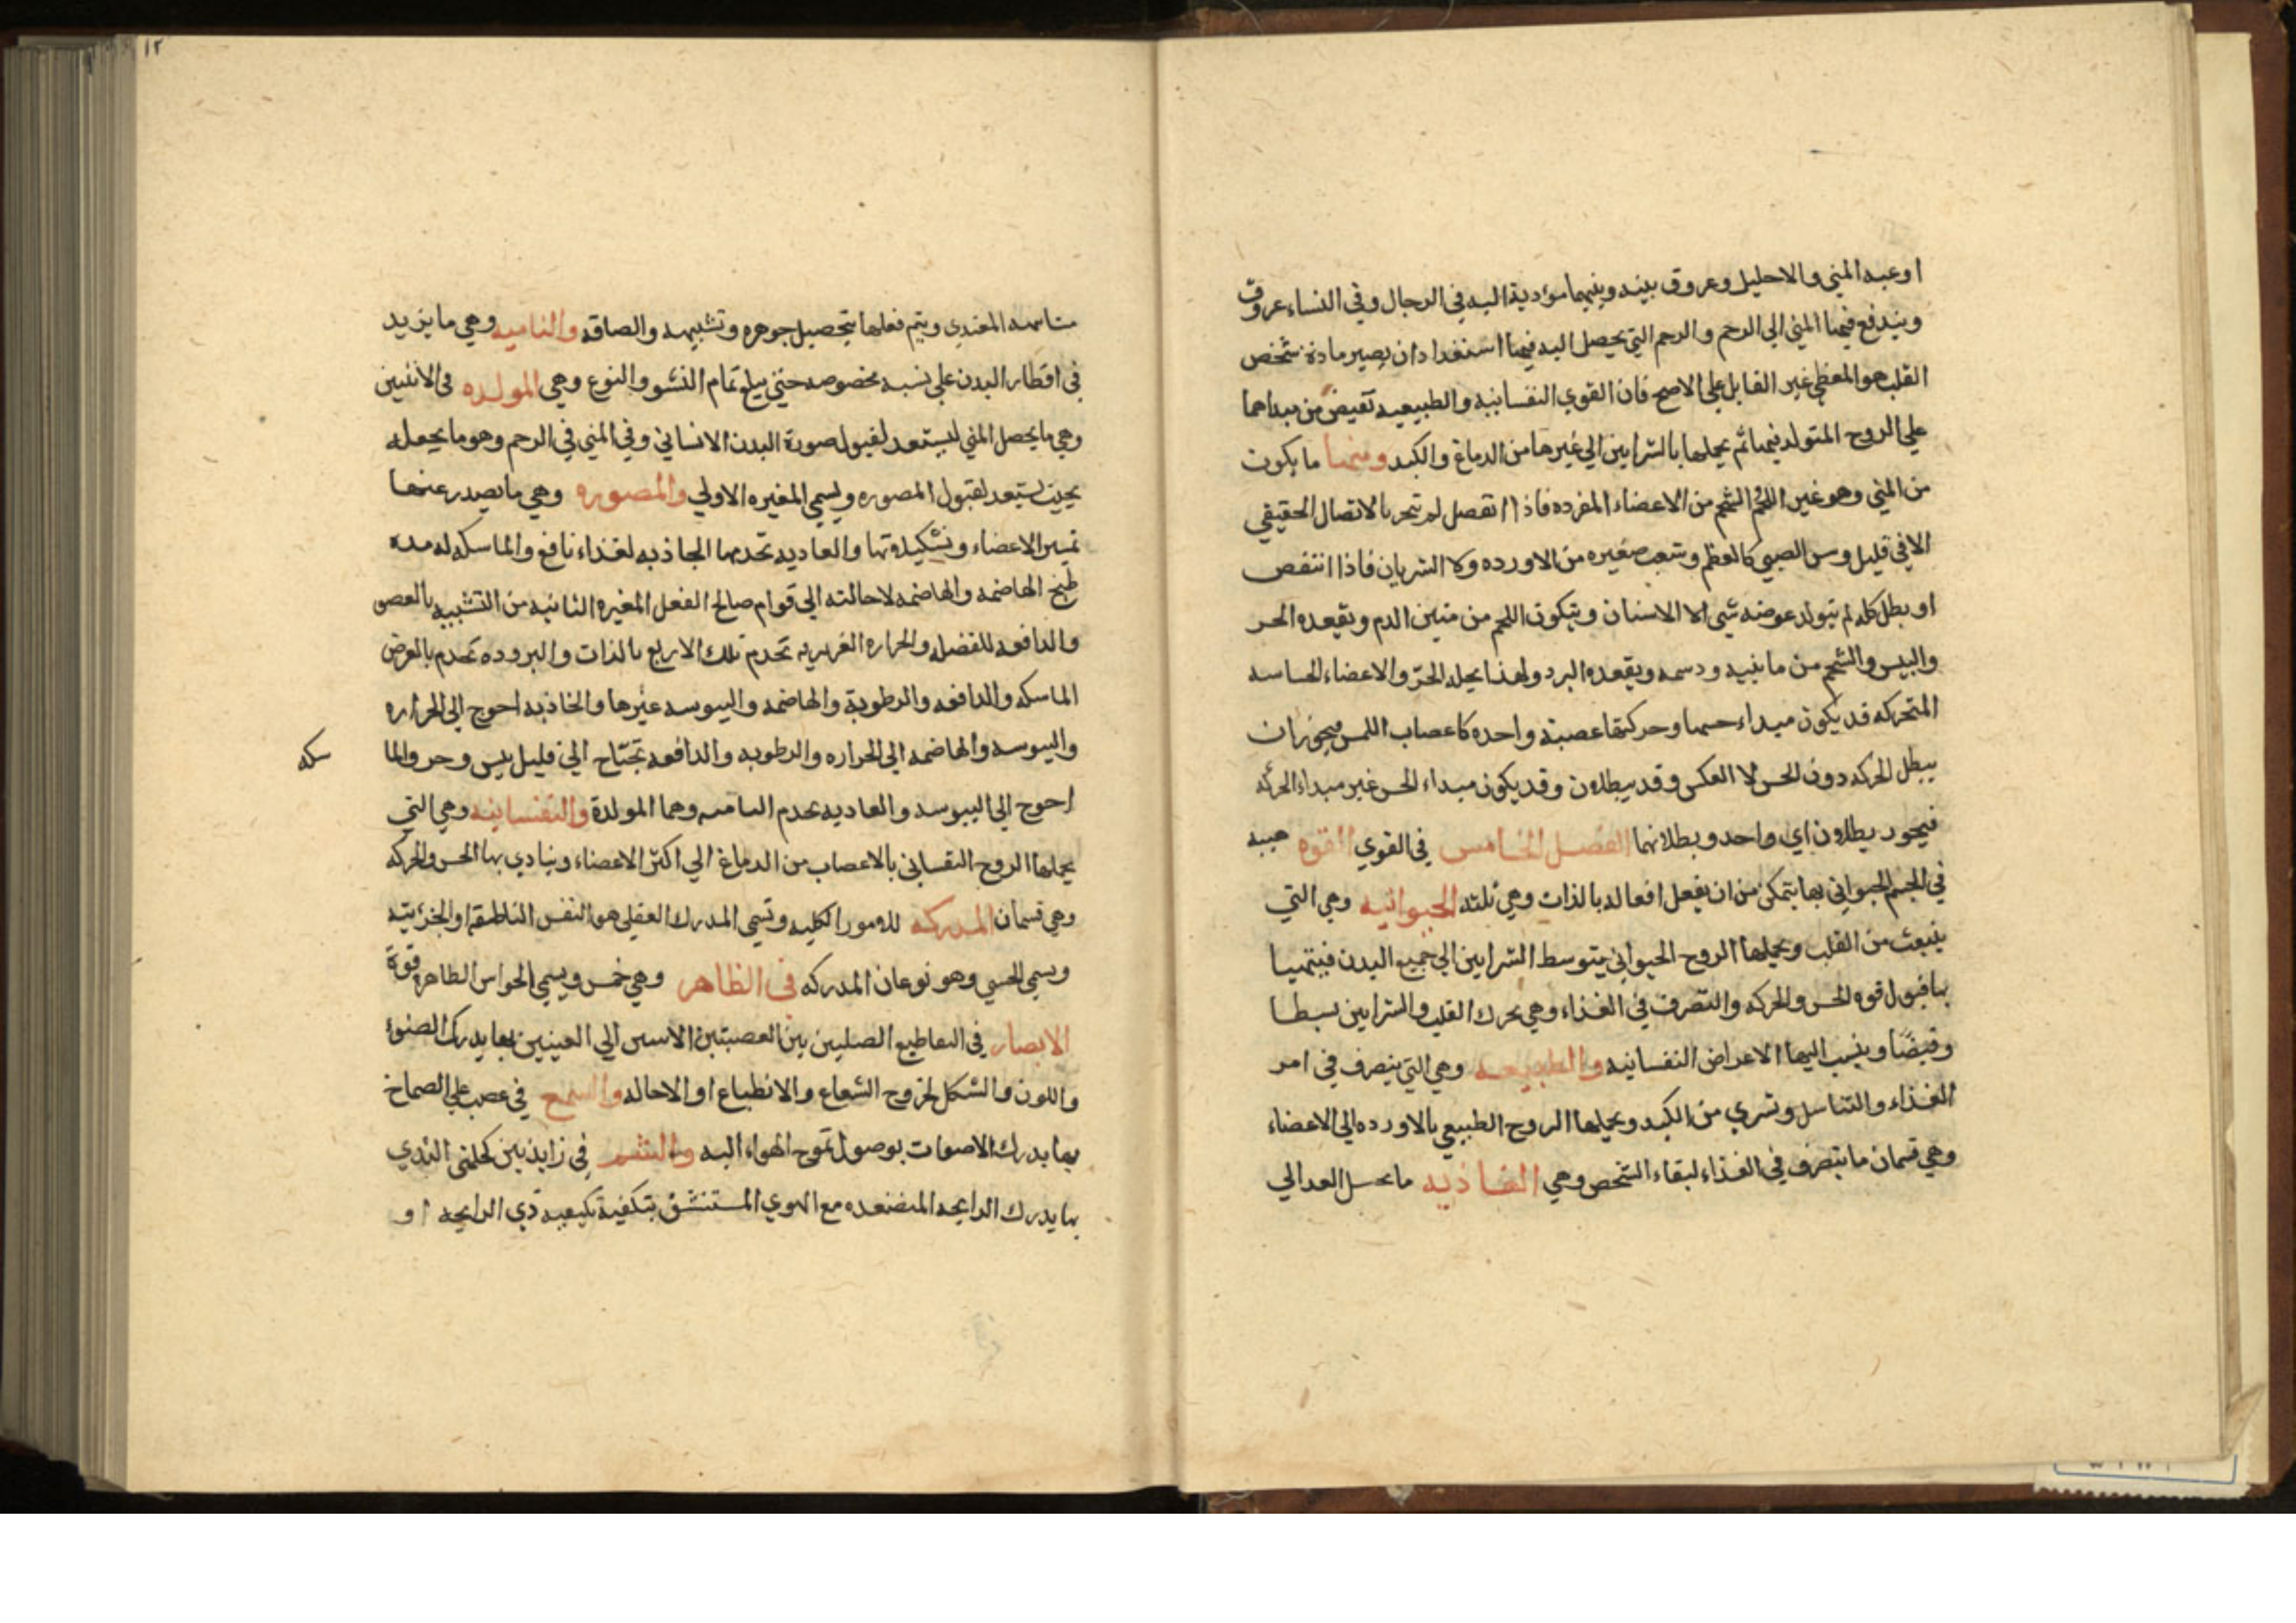 اوعيه المني والاحليل وعروق بينه وبينهما مؤدية اليه في الرجال وفي النساء عروق
ويندفع فيها المني الي الرحم والرحم التي يحصل اليه فيها استعداد ان يصير مادة شخص
القلب هو المعطي غير القابل علي الاصح فان القوي النفسانيه والطبيعيه تفيض من مبداهما
علي الروح المتولد فيهما ثم يحملها بالشرايين الي غيرها من الدماغ والكبد ومنها ما يكون
من المني وهو غير اللحم الشحم من الاعضاء المفرده فاذا اتفصل لم تنجر بالاتصال الحقيقي
الا في قليل وسن الصبي كالعظم وشعب صغيره من الاورده وكا الشريان فاذا انتفص
او بطل كله لم يتولد عوضه شي الا الاسنان ويتكون اللحم من متين الدم ويقعده الحر
واليبس والشحم من مائيه ودسمه ويقعده البرد ولهذا يحله الحرّ والاعضاء الحساسه
المتحركه قد يكون مبداء حسها وحركتها عصبة واحده كاعصاب اللمس فيجوز ان
يبطل الحركه دون الحس لا العكس وقد يبطلان وقد يكون مبداء الحس غير مبداء الحركه
فيجوز بطلان اي واحد وبطلانهما الفصل الخامس في القوي القوه هيبه
في الجسم الحيواني بها يتمكن من ان يفعل افعاله بالذات وهي ثلثه الحيوانيه وهي التي
ينبعث من القلب ويحملها الروح الحيواني بتوسط الشرايين الي جميع البدن فيتهيا
بها قبول قوه الحس والحركه والتصرف في الغذاء وهي تحرك القلب والشرايين بسطا
وقبضًا وينسب اليها الاعراض النفسانيه والطبيعيه وهي التي يتصرف في امر
الغذاء والتناسل وتسري من الكبد ويحملها الروح الطبيعي بالاورده الي الاعضاء
وهي قسمان ما يتصرف في الغذاء لبقاء الشخص وهي الغاذيه ما يحيل العدا الي
١٢
مشابهه المغتذي ويتم فعلها بتحصيل جوهره وتشبيهه والصاقه والناميه وهي ما يزيد
في اقطار البدن علي نسبه مخصوصه حتي يبلغ تمام النشو والنوع وهي المولده في الانثيين
وهي ما يحصل المني ليستعد لقبول صورة البدن الانساني وفي المني في الرحم وهو ما يجعله
بحيث يستعد لقبول المصوره ويسمي المغيره الاولي والمصوره وهي ما يصدر عنها
تميير الاعضاء وتشكيلاتها والغاديه تخدمها الجاذبه لغذاء نافع والماسكه له مده
طبخ الهاضمه والهاضمه لاحالته الي قوام صالح الفعل المغيره الثانيه من التشبيه بالعضو
والدافعه للفضله والحراره الغريزيه تخدم تلك الاربع بالذات والبروده تخدم بالعرض
الماسكه والدافعه والرطوبة والهاضمه واليبوسه غيرها والجاذبه احوج الي الحراره
واليبوسه والهاضمه الي الحراره والرطوبه والدافعه تحتاج الي قليل يبس وحر والما
سكه
احوج الي اليبوسه والغاديه تخدم الناميه وهما المولدة والنفسانيه وهي التي
يحملها الروح النفساني بالاعصاب من الدماغ الي اكثر الاعضاء ويتادي بها الحس والحركه
وهي قسمان المدركه للامور الكليه وتسمي المدرك العقلي هو النفس الناطقه او الجزئيته
ويسمي الحسي وهو نوعان المدركه في الظاهر وهي خمس ويسمي الحواس الظاهره قوة
الابصار في التقاطيع الصليبي بين العصبتين الاتيين الي العينين بها يدرك الضوء
واللون والشكل لخروج الشعاع والانطباع او الاحاله والسمع في عصب علي الصماخ
بها يدرك الاصوات بوصول تموج الهواء اليه والشم في زايدتين كحلمتي الثدي
بها يدرك الرايحه المتصعده مع الهوي المستنشق بتكفية بكيفيه ذي الرايحه او